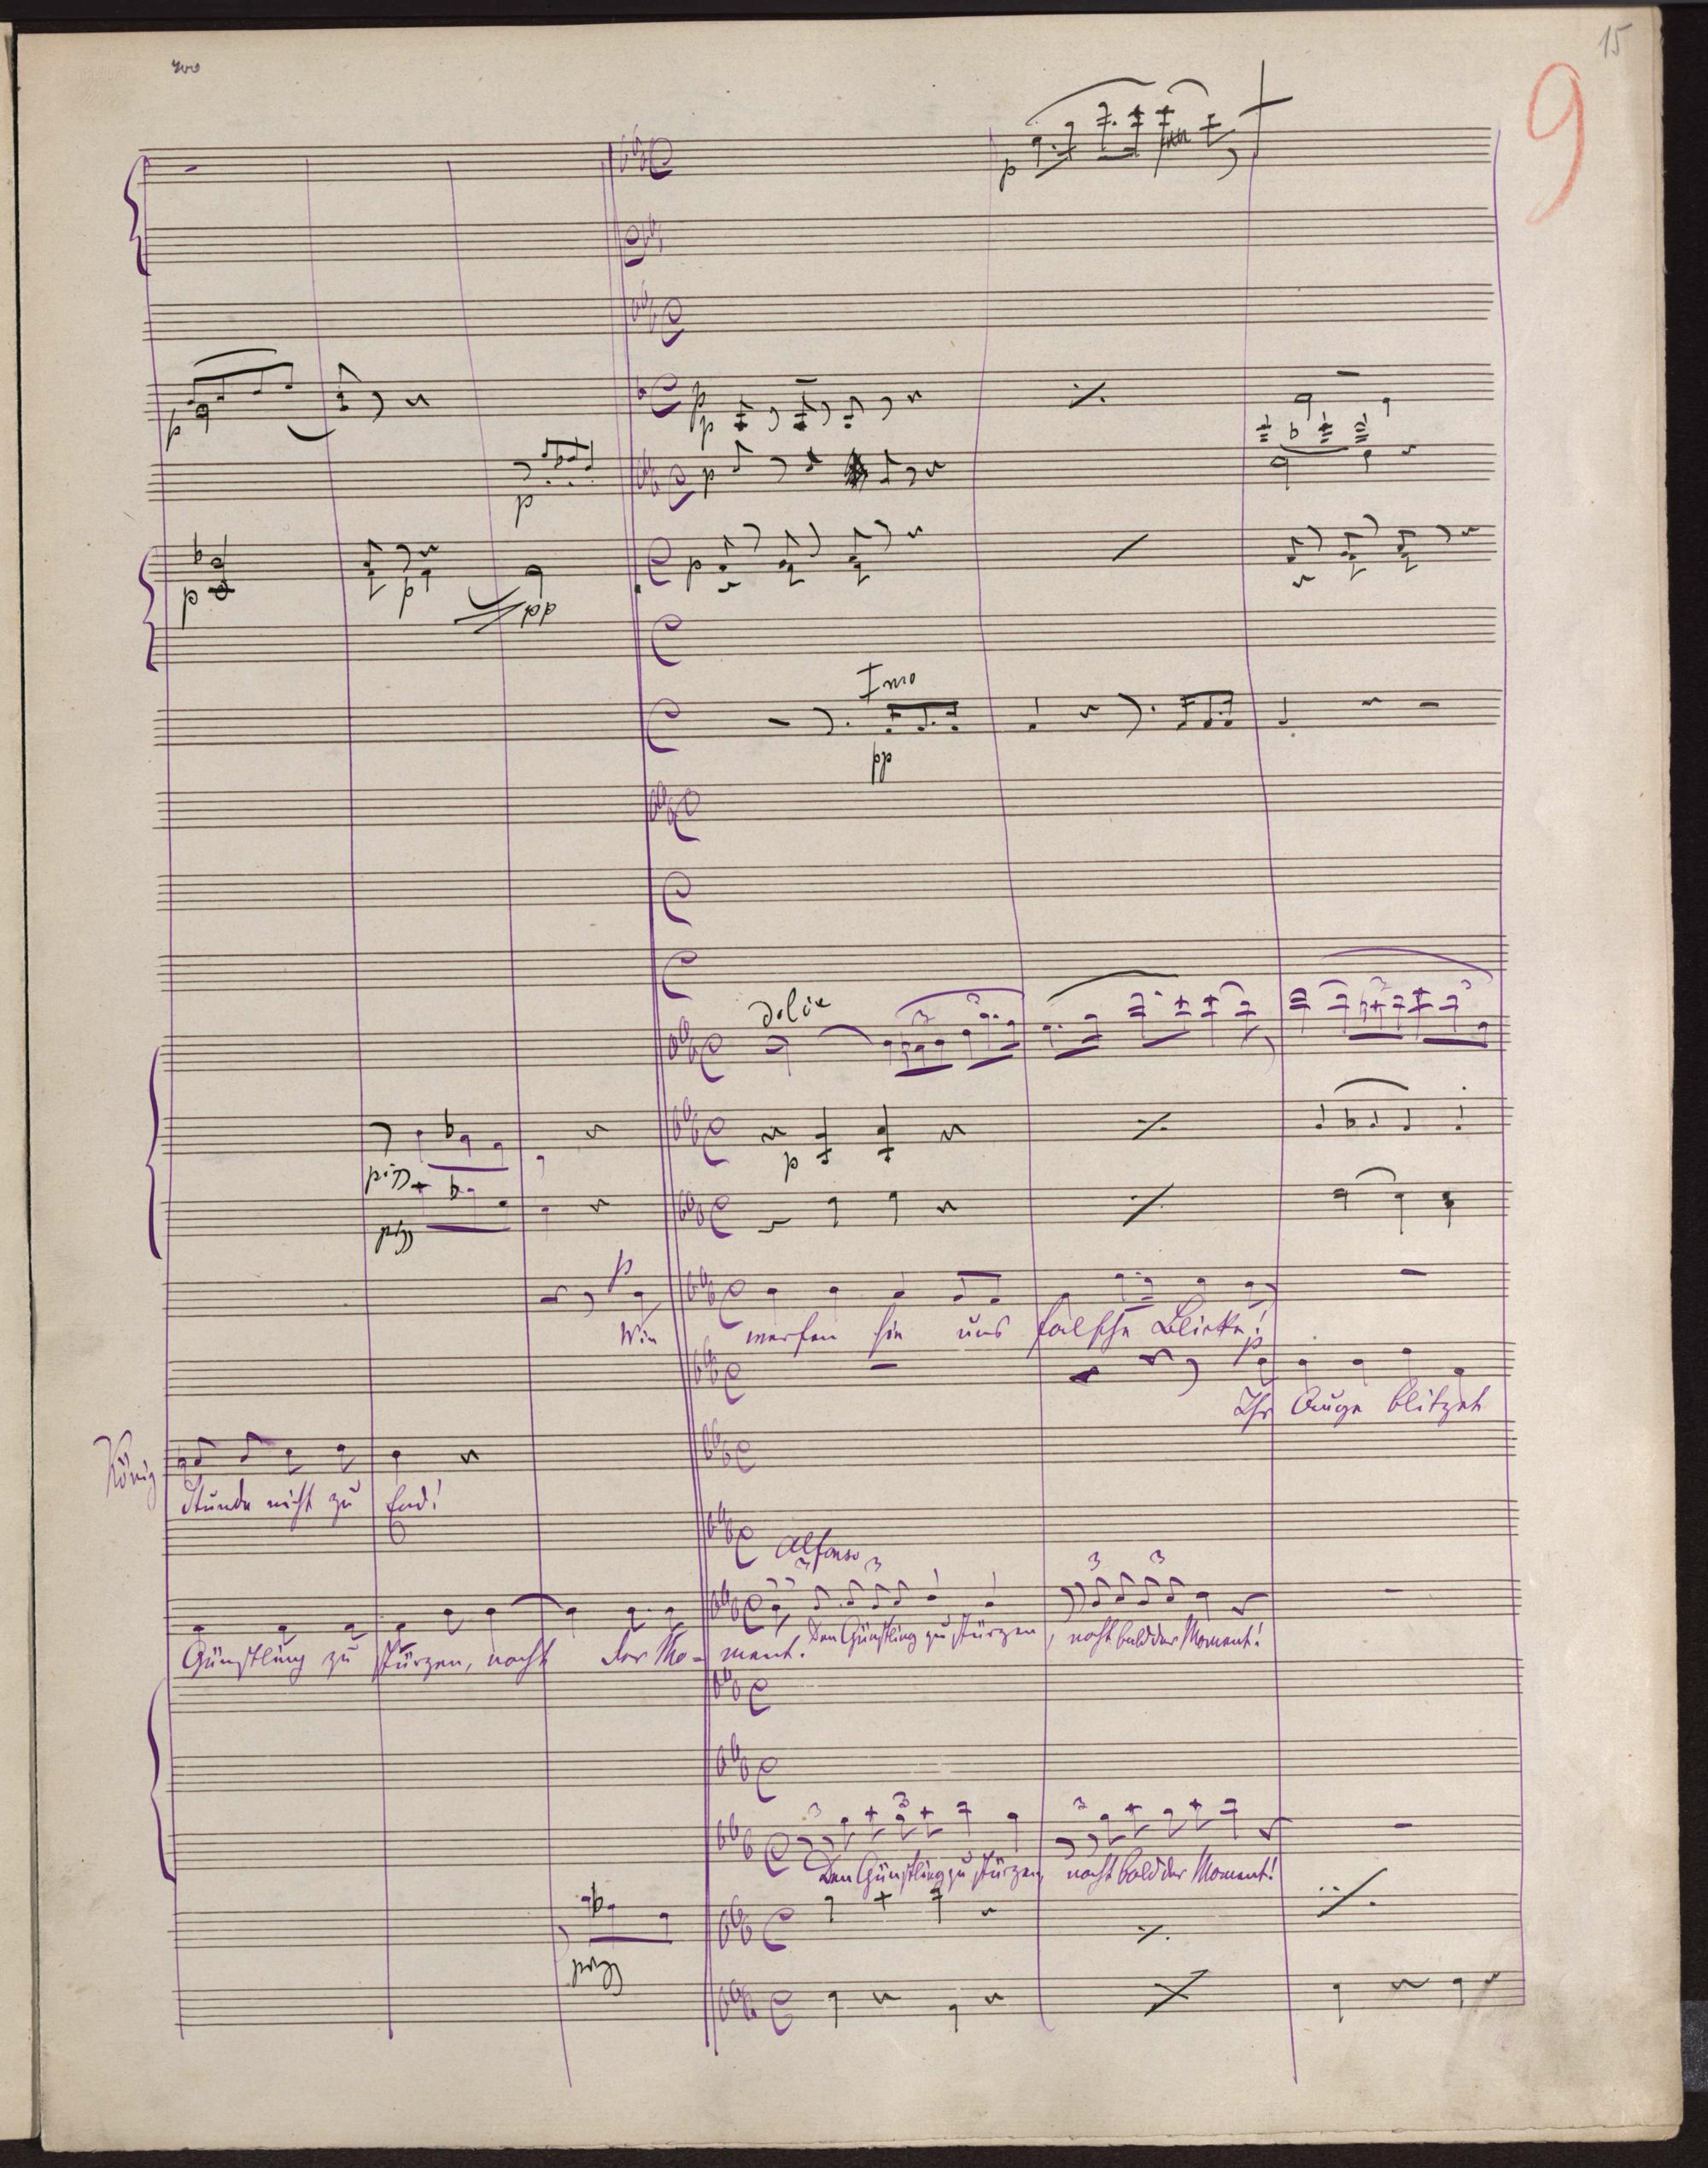 15
9
p
p
p
p
p
p
p
p
pp
p
Imo
pp
dolce
p
pizz
pizz
p
Wie werfen sie uns falsche Blicke!
p
Ihr Auge blitzet
König
Stunde nicht zu End!
Alfonso
Günstling zu stürzen, naht der Mo- ment. Den Günstling zu stürzen, naht bald der Moment!
Den Günstling zu stürzen, naht bald der Moment!
pizz